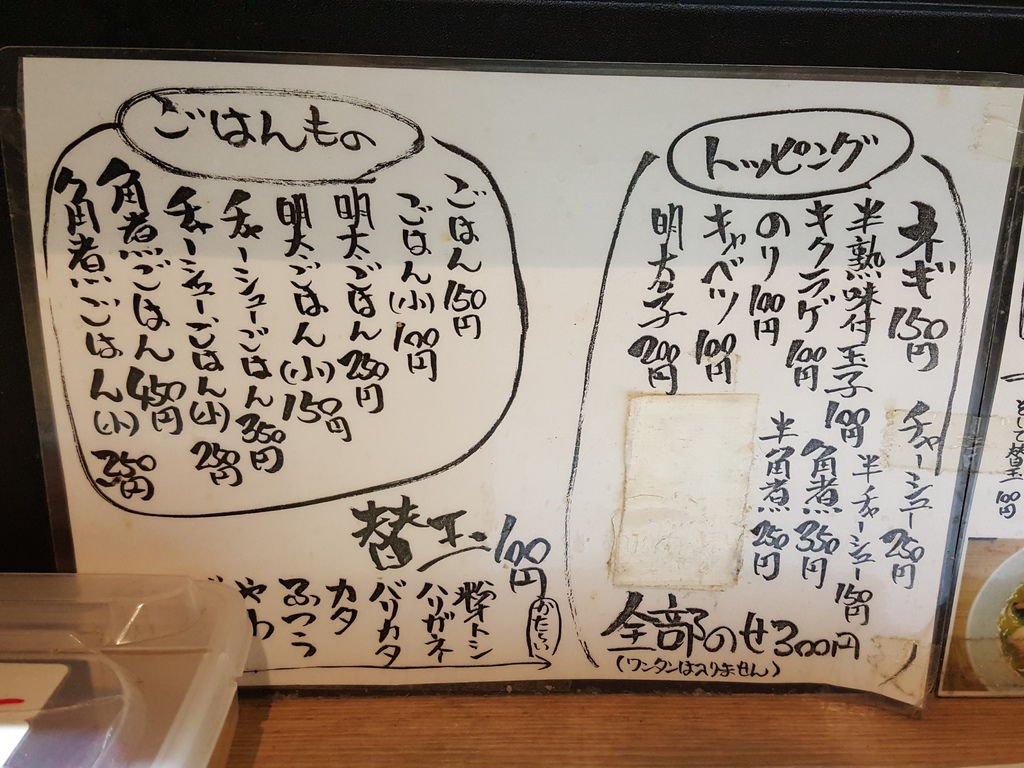 トッピング
ネギ 150円
チャーシュー 250円
半熟味付玉子 100円
半チャーシュー 150円
キクラゲ 100円
角煮 350円
のり 100円
半角煮 250円
キャベツ 100円
明太子 200円
全部のせ300円
(ワンタンは入りません)
ごはんもの
ごはん 150円
ごはん(小) 100円
明太ごはん 250円
明太ごはん(小) 150円
チャーシューごはん 350円
チャーシューごはん(小) 250円
角煮ごはん 450円
角煮ごはん(小) 350円
替玉 100円
かたくち
粉オトシ
ハリガネ
バリカタ
カタ
ふつう
やわ